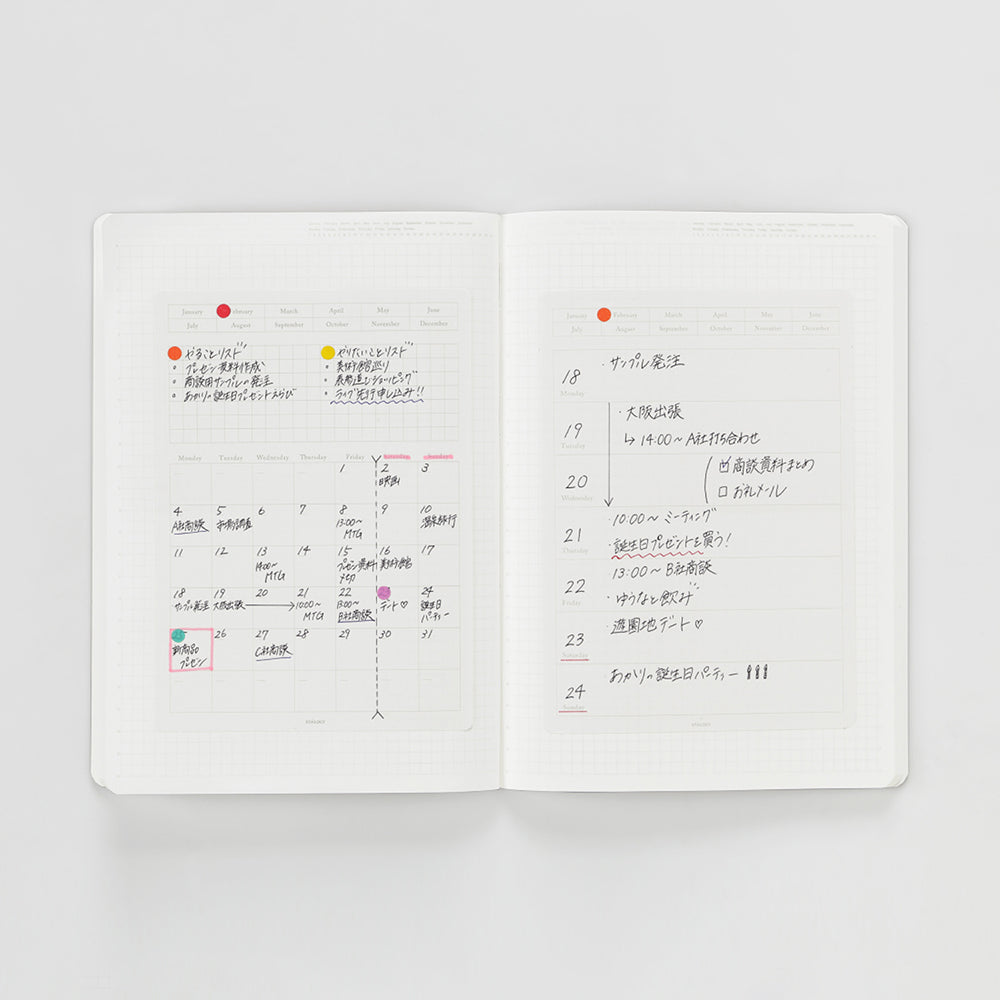 January February March April May June
July August September October November December
やることリスト
プレゼン資料作成
商談用サンプルの発注
あかりの誕生日プレゼントえらび
やりたいことリスト
美術館巡り
表参道でショッピング
ライブ先行申し込み!!
Monday Tuesday Wednesday Thursday Friday Saturday Sunday
1 2 3
映画
4 5 6 7 8 9 10
A社商談 市場調査 13:00〜 MTG 温泉旅行
11 12 13 14 15 16 17
14:00〜 MTG プレゼン資料〆切 美術館
18 19 20 21 22 23 24
サンプル発注 大阪出張 10:00〜 MTG 13:00〜 B社商談 デート♡ 誕生日パーティー
25 26 27 28 29 30 31
新商品プレゼン C社商談
STÁLOGY
January February March April May June
July August September October November December
18 Monday ・サンプル発注
19 Tuesday ・大阪出張
↳ 14:00〜 A社打ち合わせ
20 Wednesday ☑ 商談資料まとめ
☐ お礼メール
21 Thursday ・10:00〜 ミーティング
・誕生日プレゼントを買う!
22 Friday 13:00〜 B社商談
・ゆうなと飲み
23 Saturday ・遊園地デート♡
24 Sunday あかりの誕生日パーティー
STÁLOGY